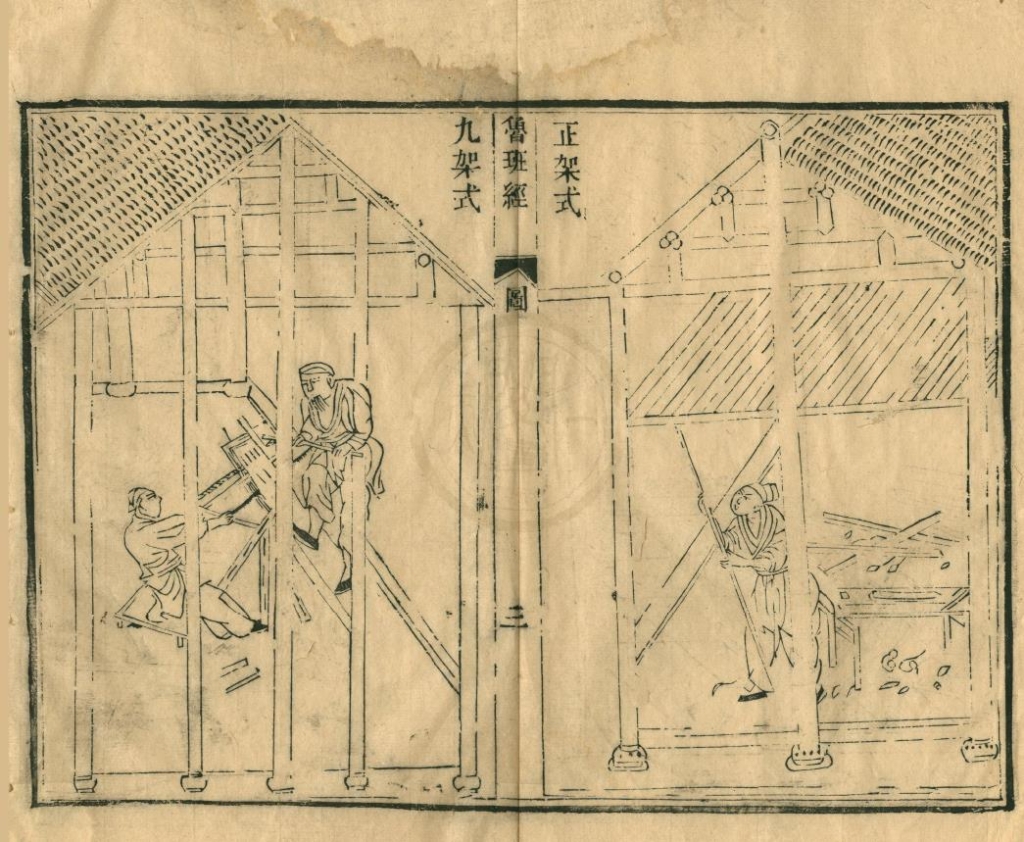 正架式
魯班經
圖
三
九架式